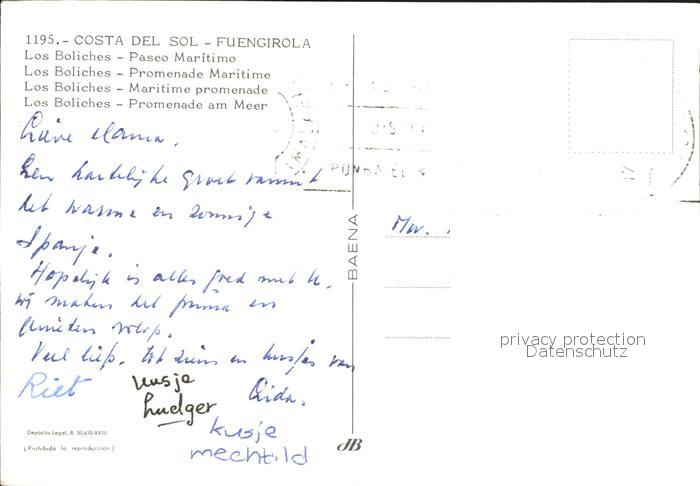 1195.- COSTA DEL SOL - FUENGIROLA
Los Boliches - Paseo Marítimo
Los Boliches - Promenade Maritime
Los Boliches - Maritime promenade
Los Boliches - Promenade am Meer
Lieve Mama,
Een hartelijke groet vanuit
het warme en zonnige
Spanje.
Hopelijk is alles goed met U.
wij maken het prima en
genieten volop.
Veel liefs, tot ziens en kusjes van
Riet
kusje
Ludger
Lida.
kusje
mechtild
Mw.
BAENA
privacy protection
Datenschutz
Depósito Legal, B. 50.635-XVIII
(Prohibida la reproducción)